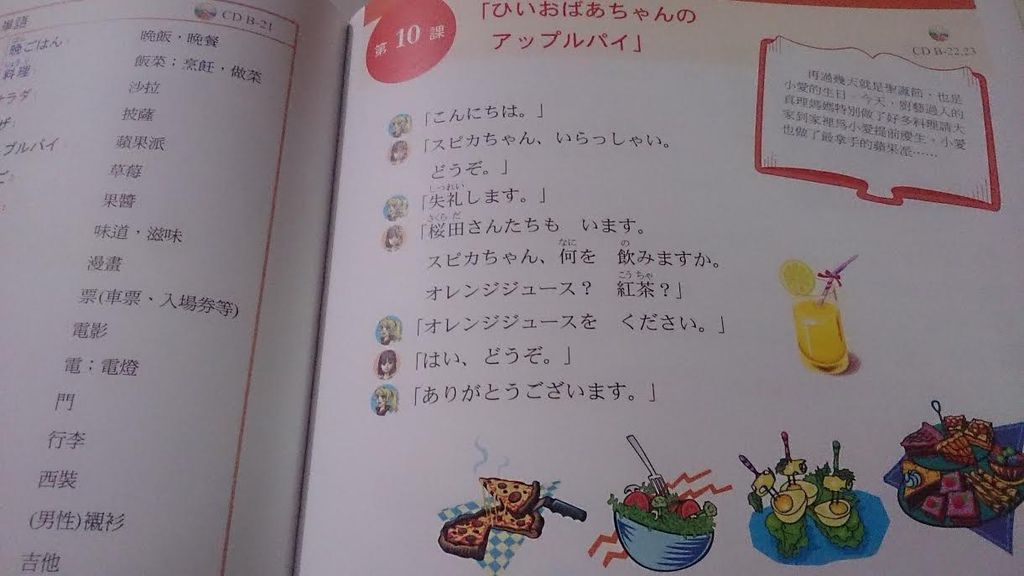 單語
CD B-21
晩ごはん
晚飯・晚餐
料理
飯菜；烹飪，做菜
サラダ
沙拉
ザ
披薩
プルパイ
蘋果派
草莓
果醬
味道・滋味
漫畫
票(車票、入場券等)
電影
電；電燈
門
行李
西裝
(男性)襯衫
吉他
第10課
「ひいおばあちゃんの
アップルパイ」
CD B-22,23
再過幾天就是聖誕節，也是
小愛的生日。今天，廚藝過人的
真理媽媽特別做了好多料理請大
家到家裡為小愛提前慶生。小愛
也做了最拿手的蘋果派……
「こんにちは。」
「スピカちゃん、いらっしゃい。
どうぞ。」
しつれい
「失礼します。」
さくらだ
「桜田さんたちも　います。
なに　の
スピカちゃん、何を　飲みますか。
こうちゃ
オレンジジュース？　紅茶？」
「オレンジジュースを　ください。」
「はい、どうぞ。」
「ありがとうございます。」